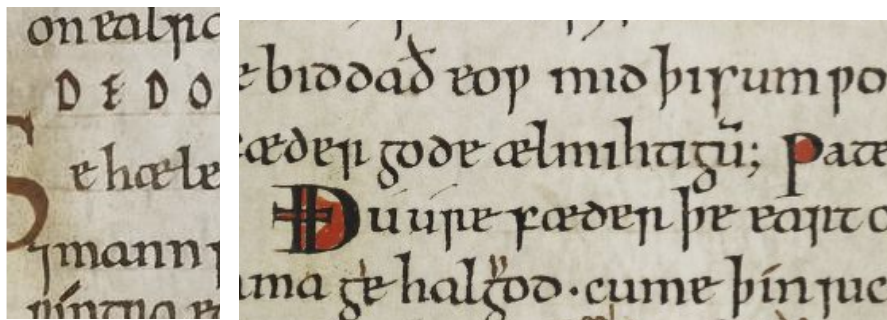 D E D O
Se hæle
mann
e biddað eoƿ mid þisum ƿo
æder gode ælmihtigū; Pate
Ðu úre fæder þe eart o
ma gehalgod · cume þín ric